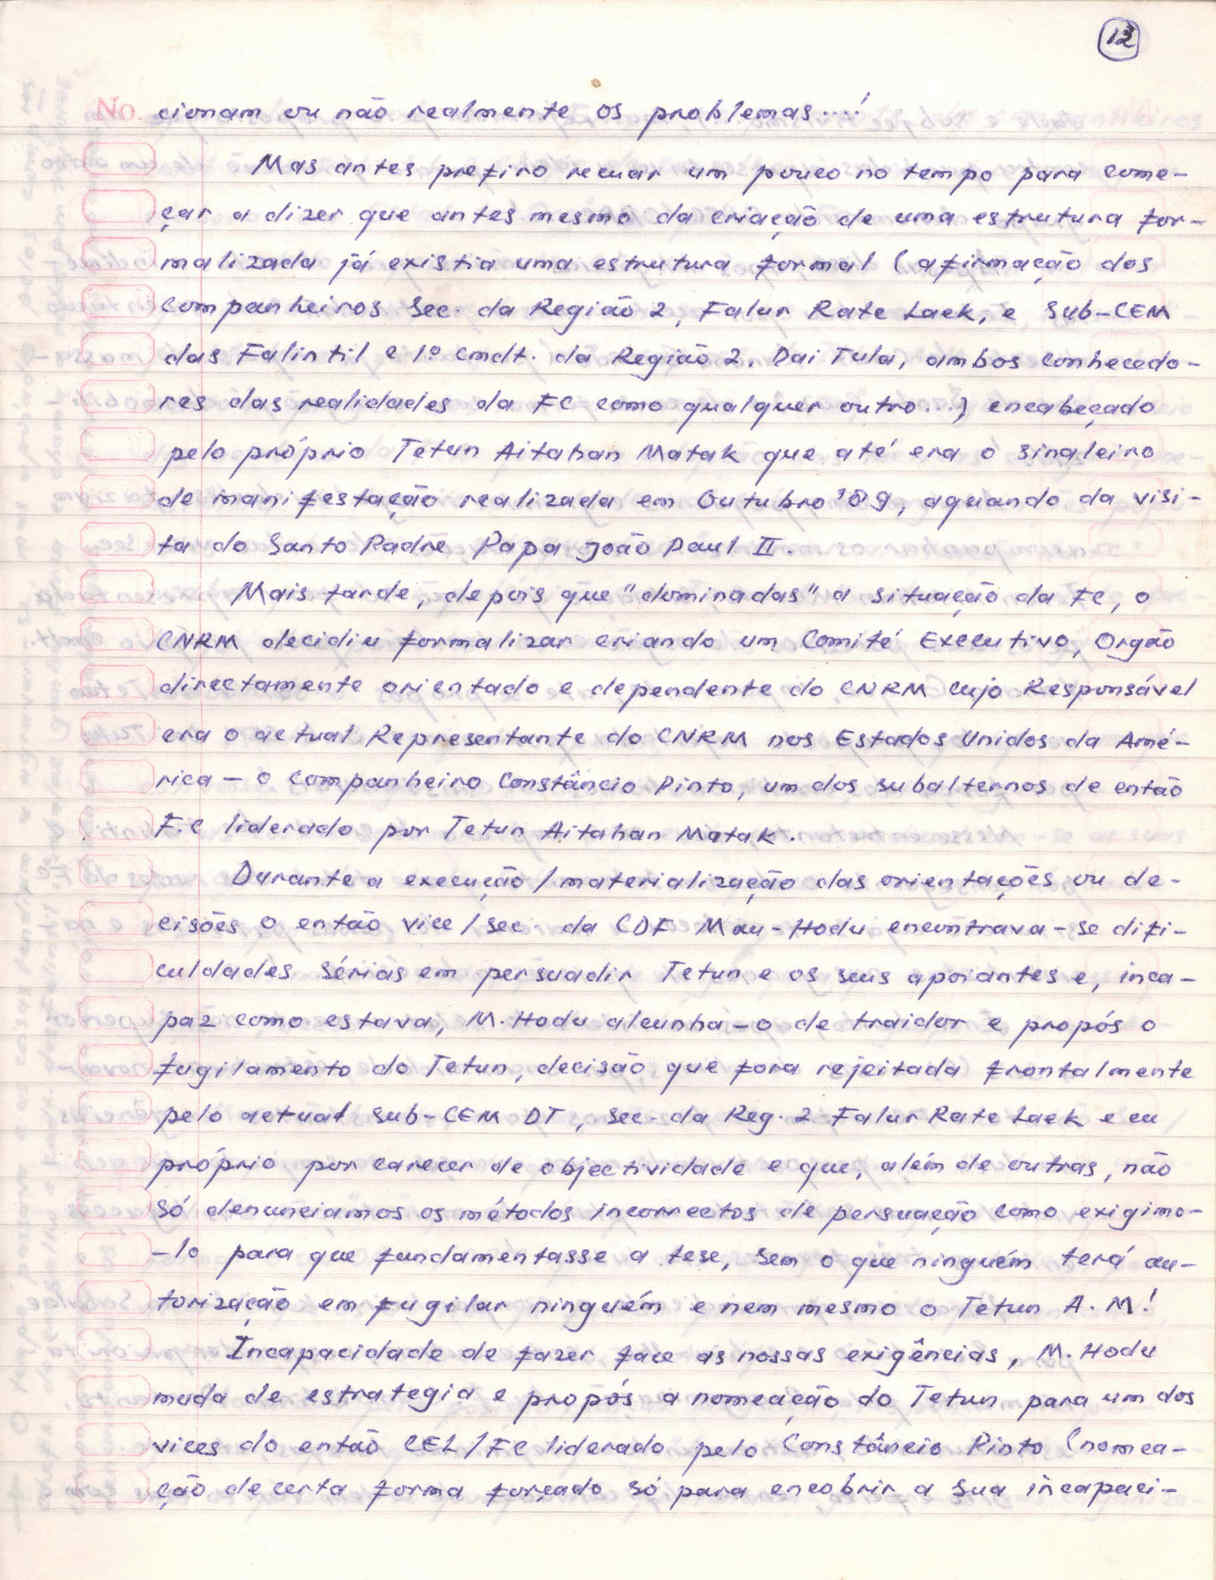 13
No. cionam ou não realmente os problemas....!
Mas antes prefiro recuar um pouco no tempo para come-
çar a dizer que antes mesmo da criação de uma estrutura for-
malizada já existia uma estrutura formal (afirmação dos
Companheiros Sec. da Região 2, Falur Rate Laek, e Sub-CEM
das Falintil e 1º Cmdt. da Região 2, Dai Tula, ambos conhecedo-
res das realidades da FC como qualquer outro...) encabeçado
pelo próprio Tetun Aitahan Matak que até era o sinaleiro
de manifestação realizada em Outubro '89, aquando da visi-
ta do Santo Padre, Papa João Paul II.
Mais tarde, depois que "dominadas" a situação da FC, o
CNRM decidiu formalizar criando um Comité Executivo, Orgão
directamente orientado e dependente do CNRM cujo Responsável
era o actual Representante do CNRM nos Estados Unidos da Amé-
rica - o Companheiro Constâncio Pinto, um dos subalternos de então
F.C liderado por Tetun Aitahan Matak.
Durante a execução/materialização das orientações ou de-
cisões o então vice/sec. da CDF Mau-Hodu encontrava-se difi-
culdades sérias em persuadir Tetun e os seus apoiantes e, inca-
paz como estava, M.Hodu alcunha-o de traidor e propós o
fugilamento do Tetun, decisão que fora rejeitada frontalmente
pelo actual Sub-CEM DT, Sec. da Reg. 2 Falur Rate Laek e eu
próprio por carecer de objectividade e que, além de outras, não
só denunciamos os métodos incorrectos de persuação como exigimo-
-lo para que fundamentasse a tese, sem o que ninguém terá au-
torização em fugilar ninguém e nem mesmo o Tetun A.M!
Incapacidade de fazer face as nossas exigências, M.Hodu
muda de estrategia e propós a nomeação do Tetun para um dos
vices do então CEL/FC liderado pelo Constâncio Pinto (nomea-
ção de certa forma forçado só para encobrir a sua incapaci-